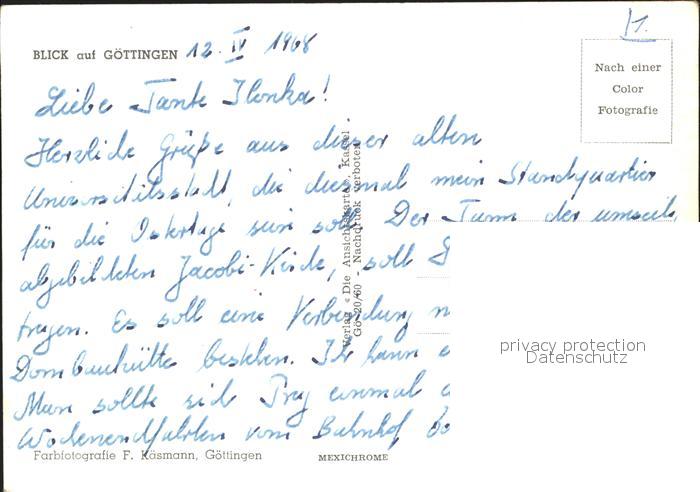 BLICK auf GÖTTINGEN 12. IV 1968
Nach einer
Color
Fotografie
Liebe Tante Ilonka!
Herzliche Grüße aus dieser alten
Universitätsstadt, die diesmal mein Standquartier
für die Ostertage sein soll. Der Turm der umseit.
abgebildeten Jacobi-Kirche, soll
tragen. Es soll eine Verbindung
Dombauhütte bestehen. Ich kann
Man sollte sich Prag einmal
Wochenendfahrten vom Bahnhof
Verlag «Die Ansichtskarte», Kassel
Gö 20/60 - Nachdruck verboten
privacy protection
Datenschutz
Farbfotografie F. Käsmann, Göttingen
MEXICHROME